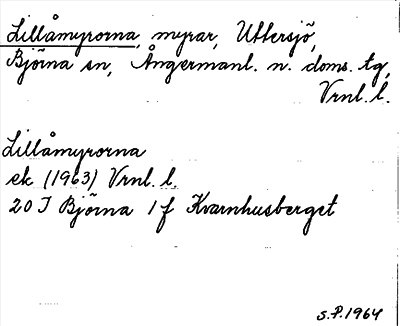 Lillåmyrorna, myrar, Uttersjö,
Björna sn, Ångermanl. n. doms. tg,
Vrnl. l.
Lillåmyrorna
ek (1963) Vrnl. l.
20 J Björna 1 f Kvarnhusberget
S.P. 1964